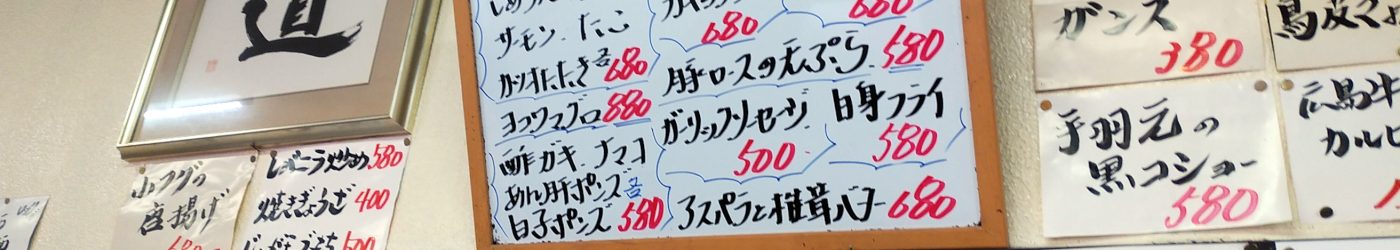 道
小フグの
唐揚げ
しょうが炒め 580
焼きぎょうざ 400
500
サーモン たこ
カツオたたき 680
ヨコワマグロ 880
酢ガキ ナマコ
あん肝ポンズ
白子ポンズ 580
680
豚ロースの天ぷら 580
ガーリックソーセージ
500
白身フライ
580
アスパラと椎茸バター 680
ガンス
380
手羽元の
黒コショー
580
鳥皮
広島牛
カル